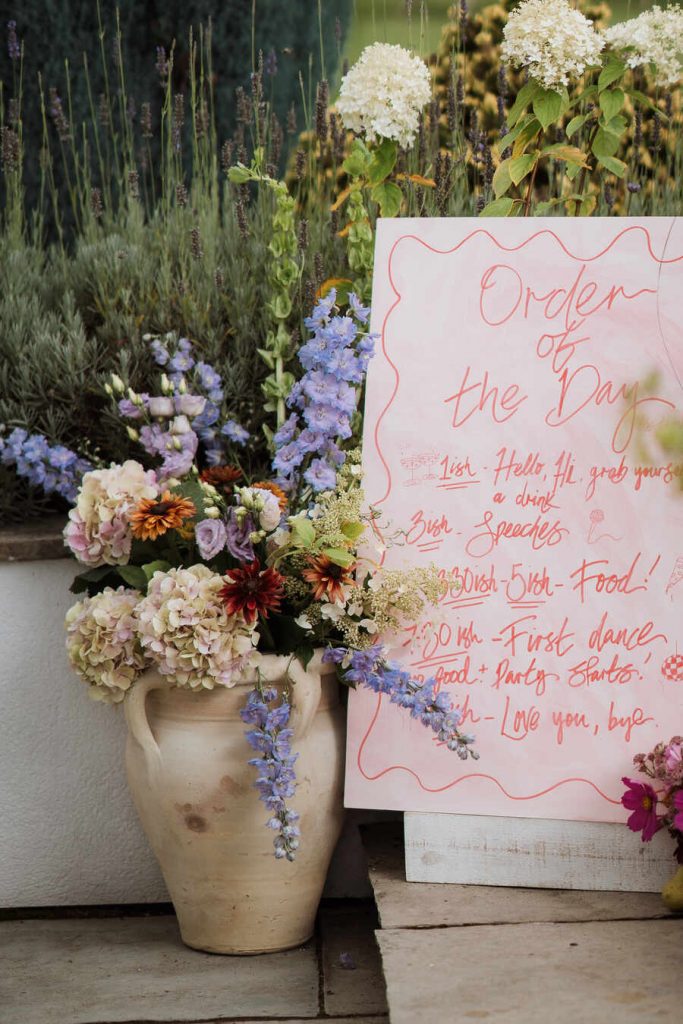 Order
of
the Day
1ish - Hello, Hi, grab yourse
a drink
3ish - Speeches
3:30ish - 5ish - Food!
7:30ish - First dance
food + Party starts!
ish - Love you, bye.